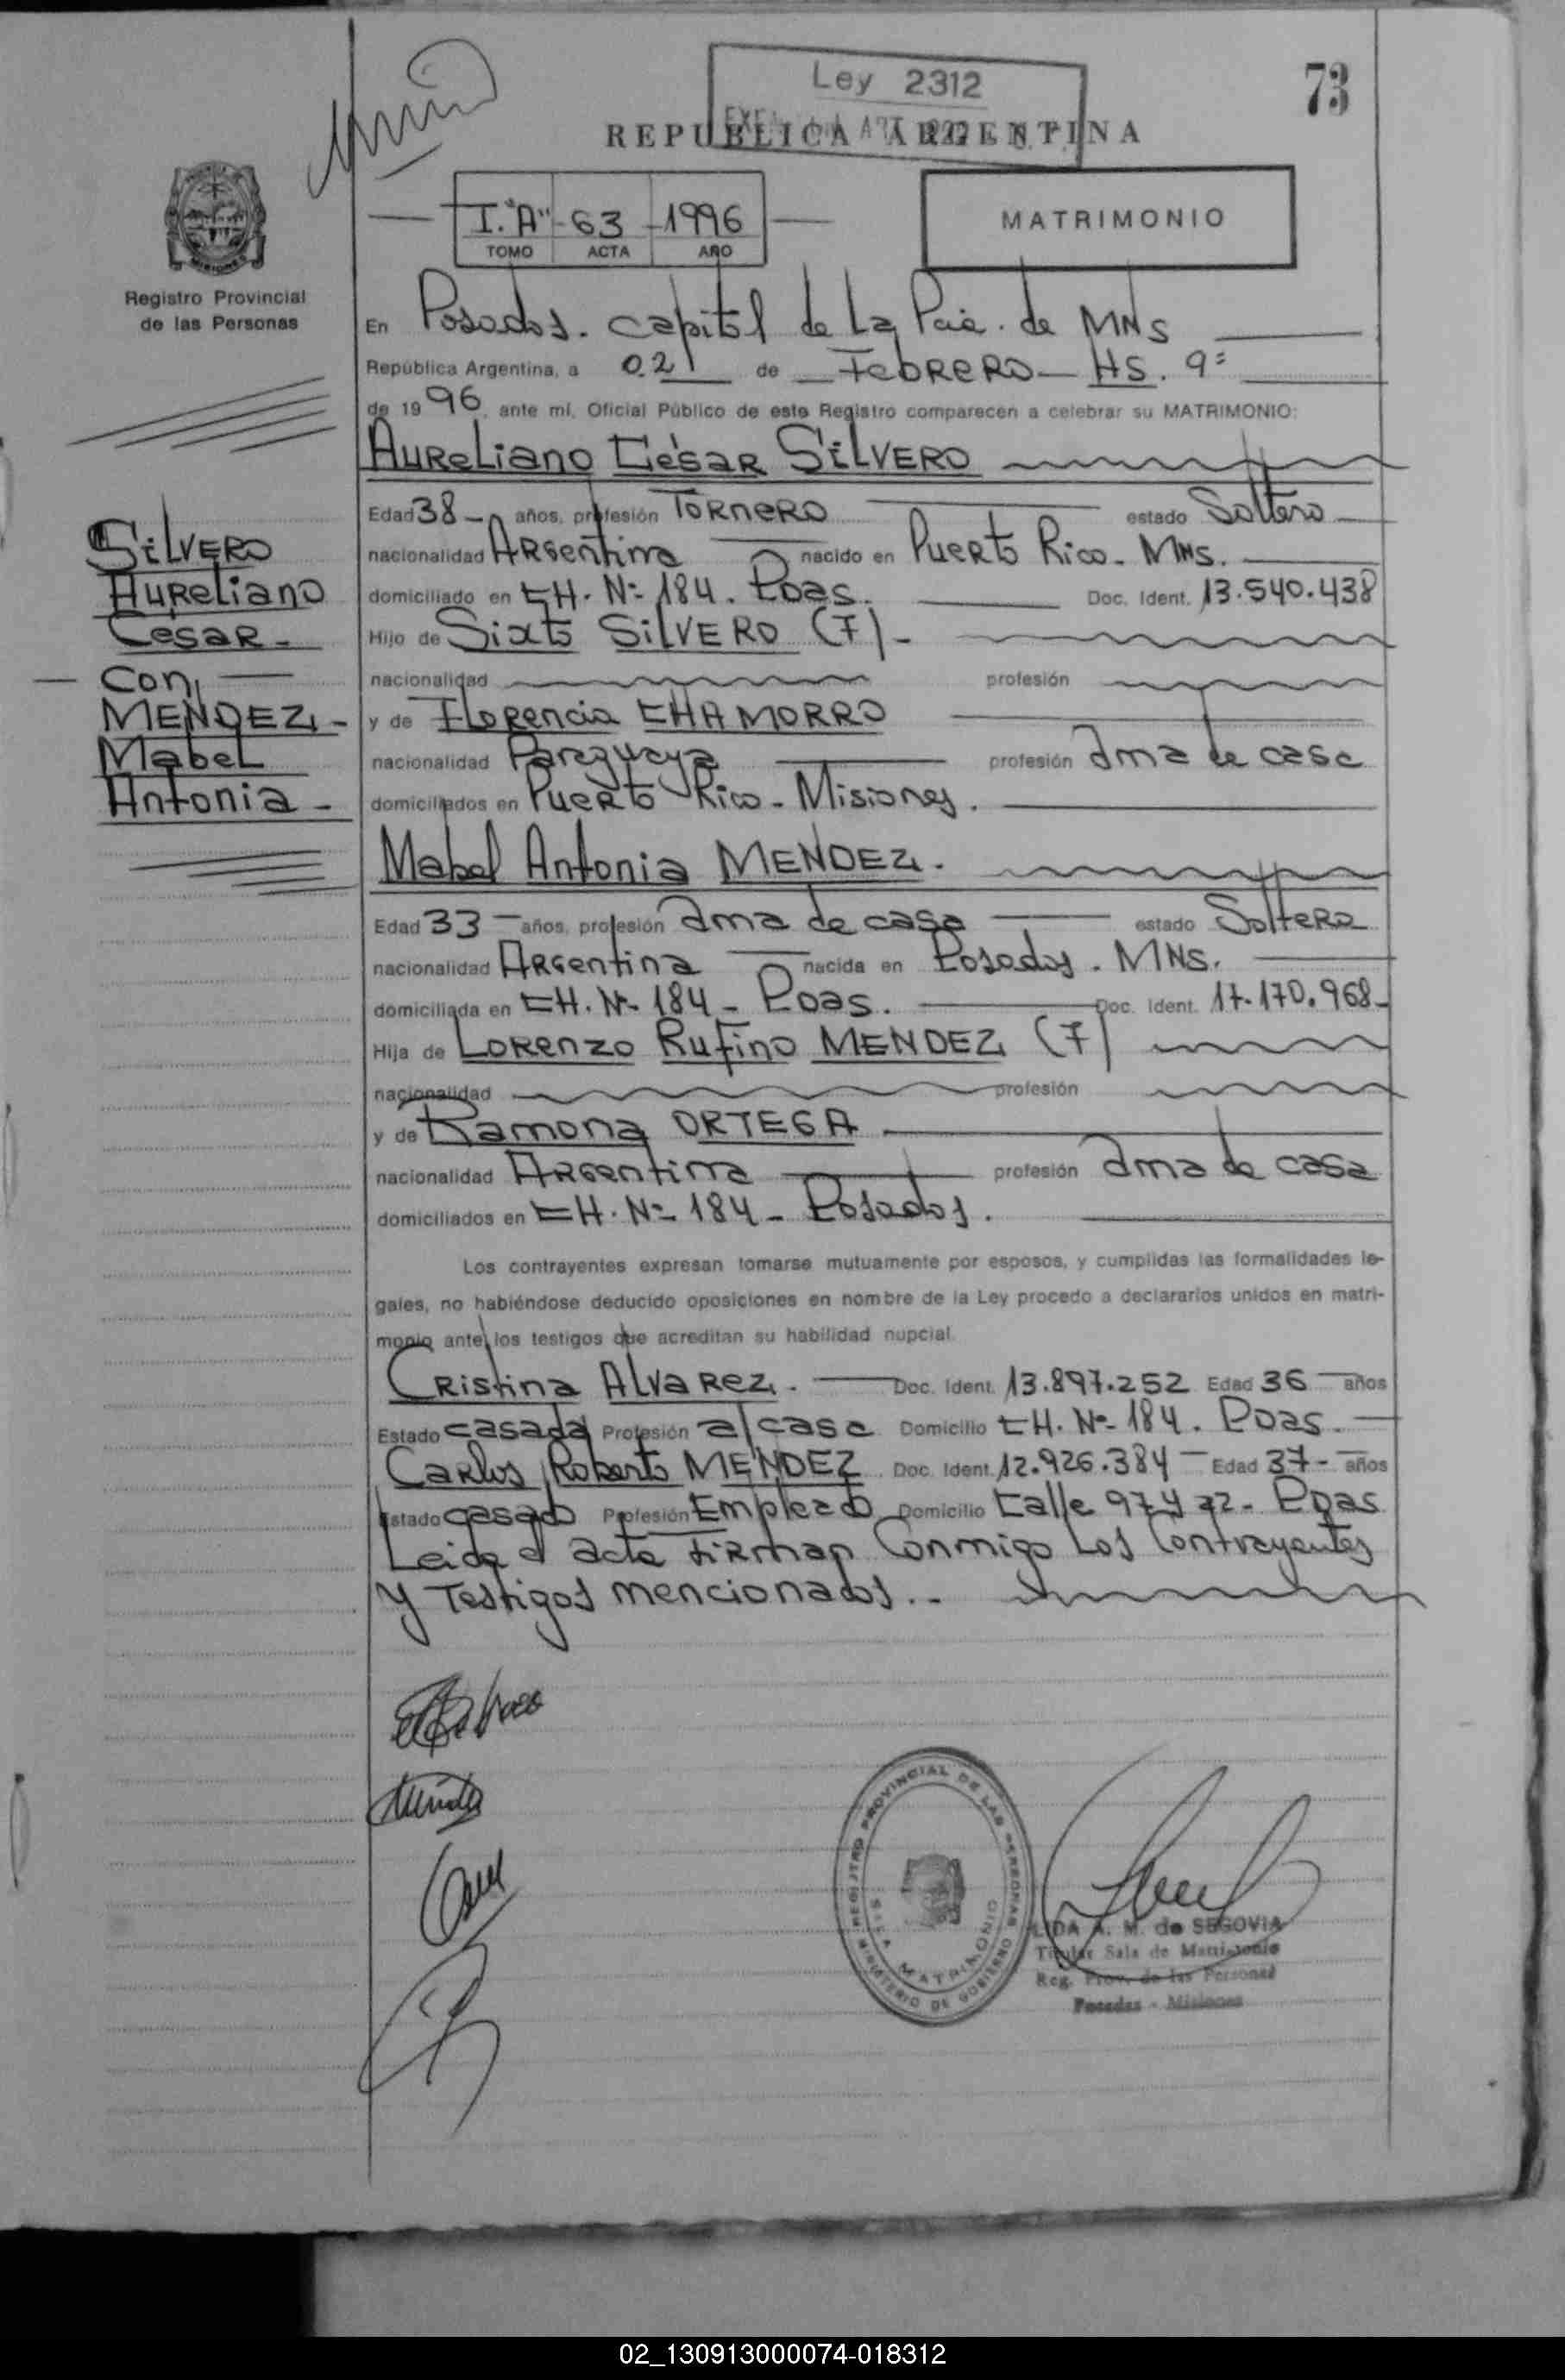 73
Ley 2312
REPUBLICA ARGENTINA
I. "A" - 63 - 1996
TOMO ACTA AÑO
MATRIMONIO
Registro Provincial
de las Personas
En Posadas. capital de La Pcia. de MNS
República Argentina, a 02 de Febrero HS. 9
de 1996, ante mí, Oficial Público de este Registro comparecen a celebrar su MATRIMONIO:
Aureliano César SILVERO
Edad 38 - años, profesión Tornero estado Soltero
nacionalidad Argentina nacido en Puerto Rico - MNS.
domiciliado en CH. Nº 184. Pdas. Doc. Ident. 13.540.438
Hijo de Sixto SILVERO (F) -
nacionalidad profesión
y de Florencia CHAMORRO
nacionalidad Paraguaya profesión Ama de casa
domiciliados en Puerto Rico - Misiones.
SILVERO
Aureliano
César -
Con
MENDEZ -
Mabel
Antonia -
Mabel Antonia MENDEZ.
Edad 33 - años, profesión Ama de casa estado Soltera
nacionalidad Argentina nacida en Posadas. MNS.
domiciliada en CH. Nº 184 - Pdas. Doc. Ident. 17.170.968 -
Hija de Lorenzo Rufino MENDEZ (F)
nacionalidad profesión
y de Ramona ORTEGA
nacionalidad Argentina profesión Ama de casa
domiciliados en CH. Nº 184 - Posadas.
Los contrayentes expresan tomarse mutuamente por esposos, y cumplidas las formalidades le-
gales, no habiéndose deducido oposiciones en nombre de la Ley procedo a declararlos unidos en matri-
monio ante los testigos que acreditan su habilidad nupcial.
Cristina Alvarez. Doc. Ident. 13.897.252 Edad 36 años
Estado casada Profesión a/casa Domicilio CH. Nº 184. Pdas.
Carlos Roberto MENDEZ Doc. Ident. 12.926.384 - Edad 37 - años
Estado casado Profesión Empleado Domicilio Calle 97 y 72 - Pdas
Leida el acta firman Conmigo Los Contrayentes
y Testigos mencionados..
REGISTRO PROVINCIAL DE LAS PERSONAS
MINISTERIO DE GOBIERNO
MATRIMONIO
LIDA A. M. de SEGOVIA
Titular Sala de Matrimonio
Reg. Prov. de las Personas
Posadas - Misiones
02_130913000074-018312